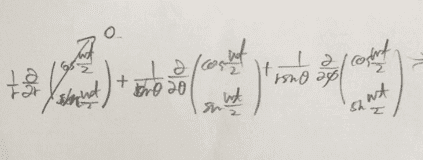 0
1/r ∂/∂r (cos wt/2 sin wt/2) + 1/rsinθ ∂/∂θ (cos wt/2 sin wt/2) + 1/rsinθ ∂/∂φ (cos wt/2 sin wt/2)